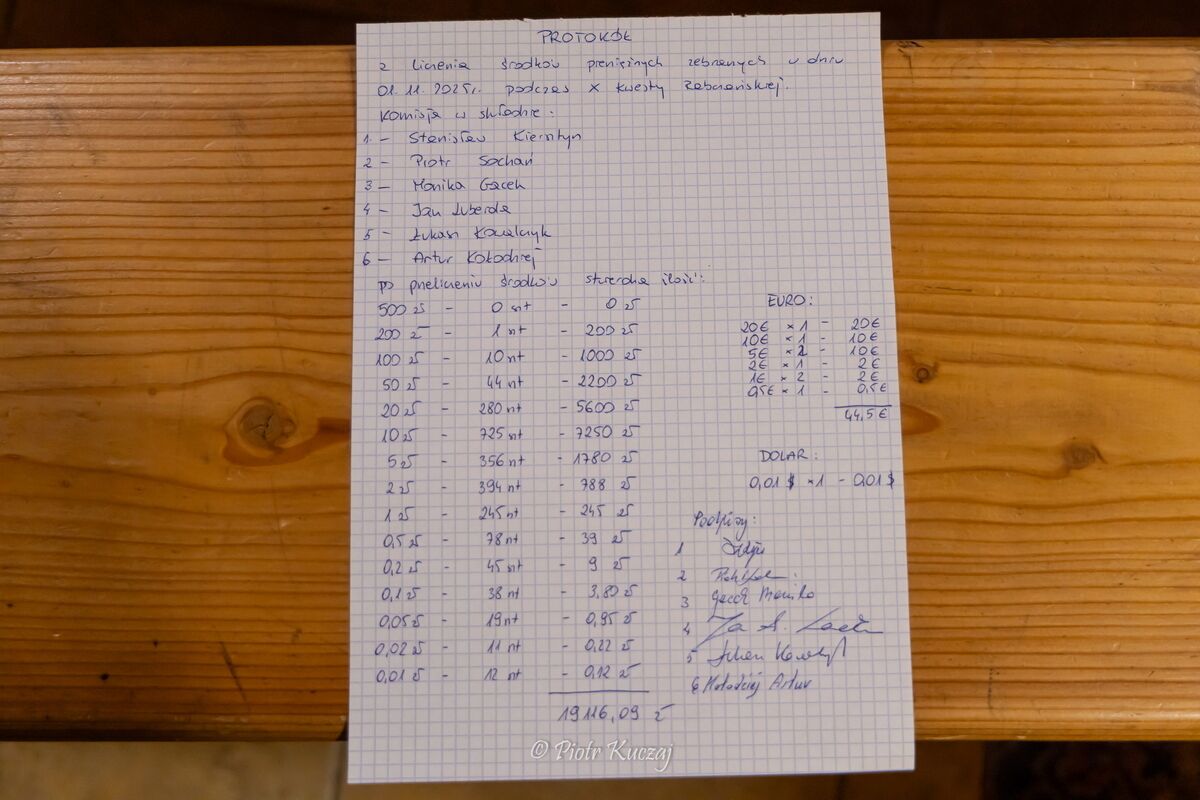 PROTOKÓŁ
z liczenia środków pieniężnych zebranych w dniu
01.11.2025r. podczas X kwesty Rabczańskiej.
Komisja w składzie:
1. - Stanisław Kierntyn
2 - Piotr Sochań
3 - Monika Gacek
4 - Jan Luberda
5 - Łukasz Kowalczyk
6 - Artur Kołodziej
po przeliczeniu środków stwierdza ilość:
500 zł - 0 szt - 0 zł
200 zł - 1 szt - 200 zł
100 zł - 10 szt - 1000 zł
50 zł - 44 szt - 2200 zł
20 zł - 280 szt - 5600 zł
10 zł - 725 szt - 7250 zł
5 zł - 356 szt - 1780 zł
2 zł - 394 szt - 788 zł
1 zł - 245 szt - 245 zł
0,5 zł - 78 szt - 39 zł
0,2 zł - 45 szt - 9 zł
0,1 zł - 38 szt - 3,80 zł
0,05 zł - 19 szt - 0,95 zł
0,02 zł - 11 szt - 0,22 zł
0,01 zł - 12 szt - 0,12 zł
19116,09 zł
EURO:
20€ x 1 - 20€
10€ x 1 - 10€
5€ x 2 - 10€
2€ x 1 - 2€
1€ x 2 - 2€
0,5€ x 1 - 0,5€
44,5€
DOLAR:
0,01 $ x 1 - 0,01 $
Podpisy:
1
2
3 Gacek Monika
4
5
6 Kołodziej Artur
© Piotr Kuczaj